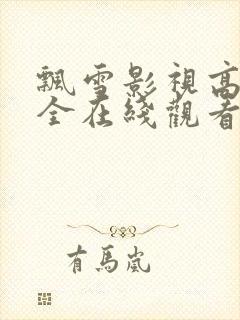 飄雪影視高
全在綫觀看
有馬嵐